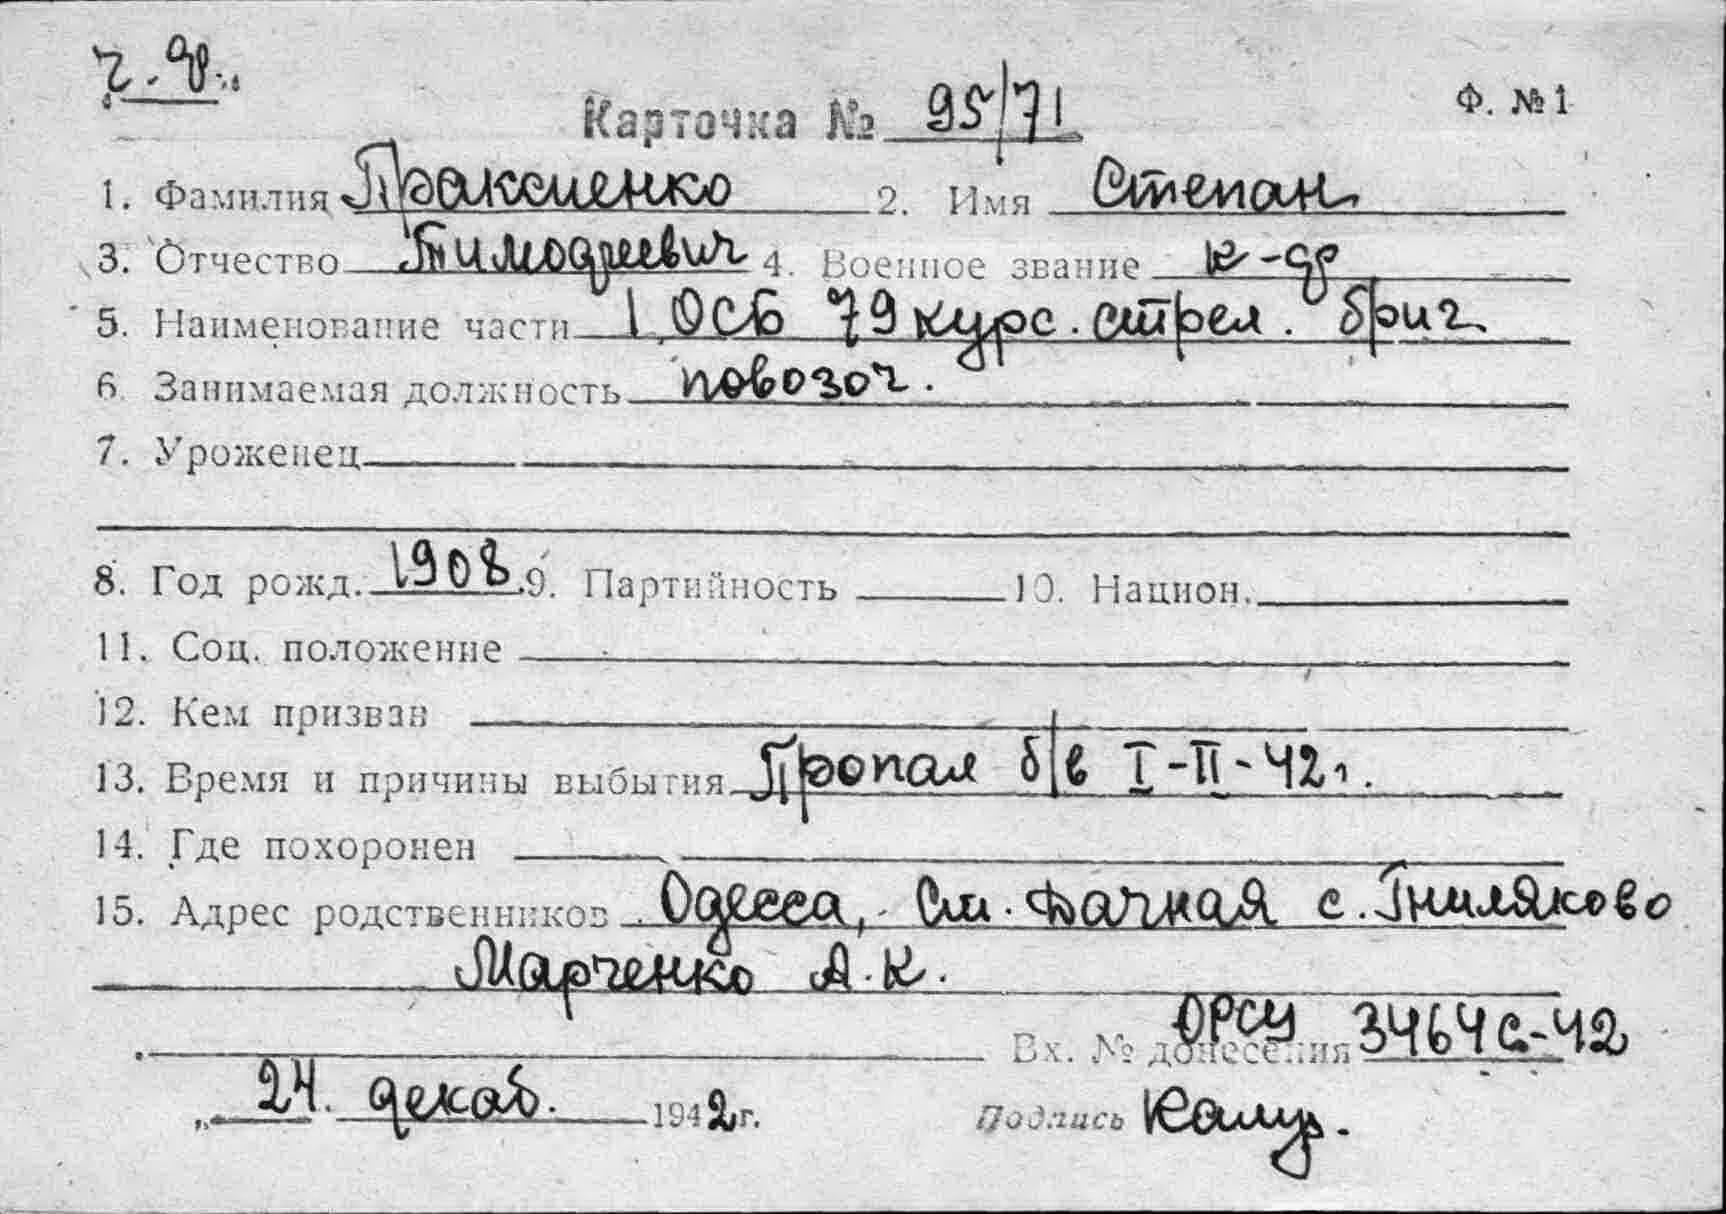 ч.ф.
Карточка № 95/71 Ф. №1
1. Фамилия Праксиенко 2. Имя Степан
3. Отчество Тимофеевич 4. Военное звание к-др
5. Наименование части 1 ОСБ 79 курс. стрел. бриг.
6. Занимаемая должность повозоч.
7. Уроженец
8. Год рожд. 1908 9. Партийность 10. Национ.
11. Соц. положение
12. Кем призван
13. Время и причины выбытия Пропал б/в I-II-42 г.
14. Где похоронен
15. Адрес родственников Одесса, ст. Дачная с. Гниляково
Марченко А. К.
Вх. № донесения ОРСУ 3464с-42
„24. декаб. 1942 г. Подпись